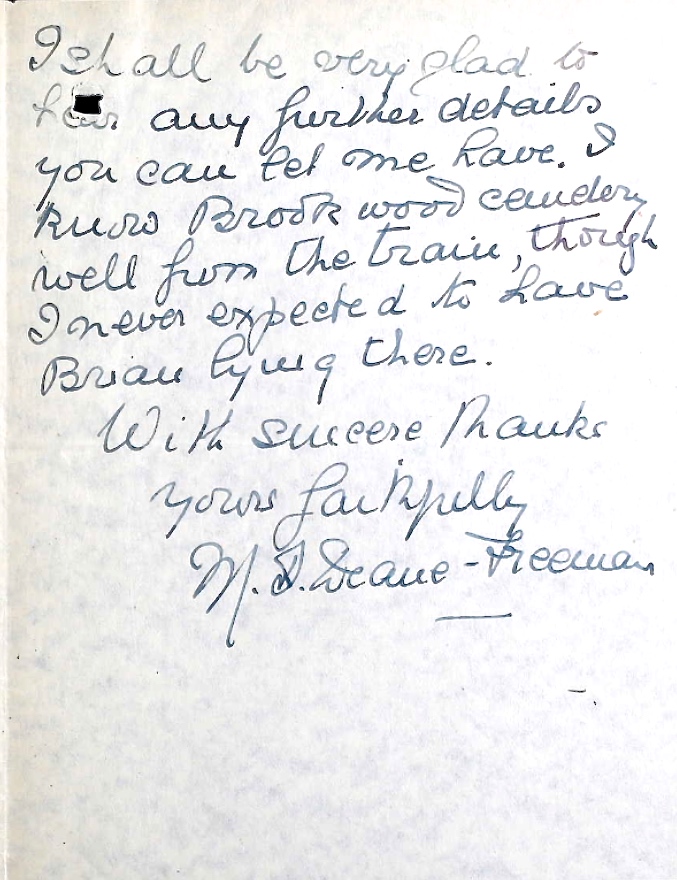 I shall be very glad to
hear any further details
you can let me have. I
know Brookwood cemetery
well from the train, though
I never expected to have
Brian lying there.
With sincere thanks
yours faithfully
M. D. Deane-Freeman